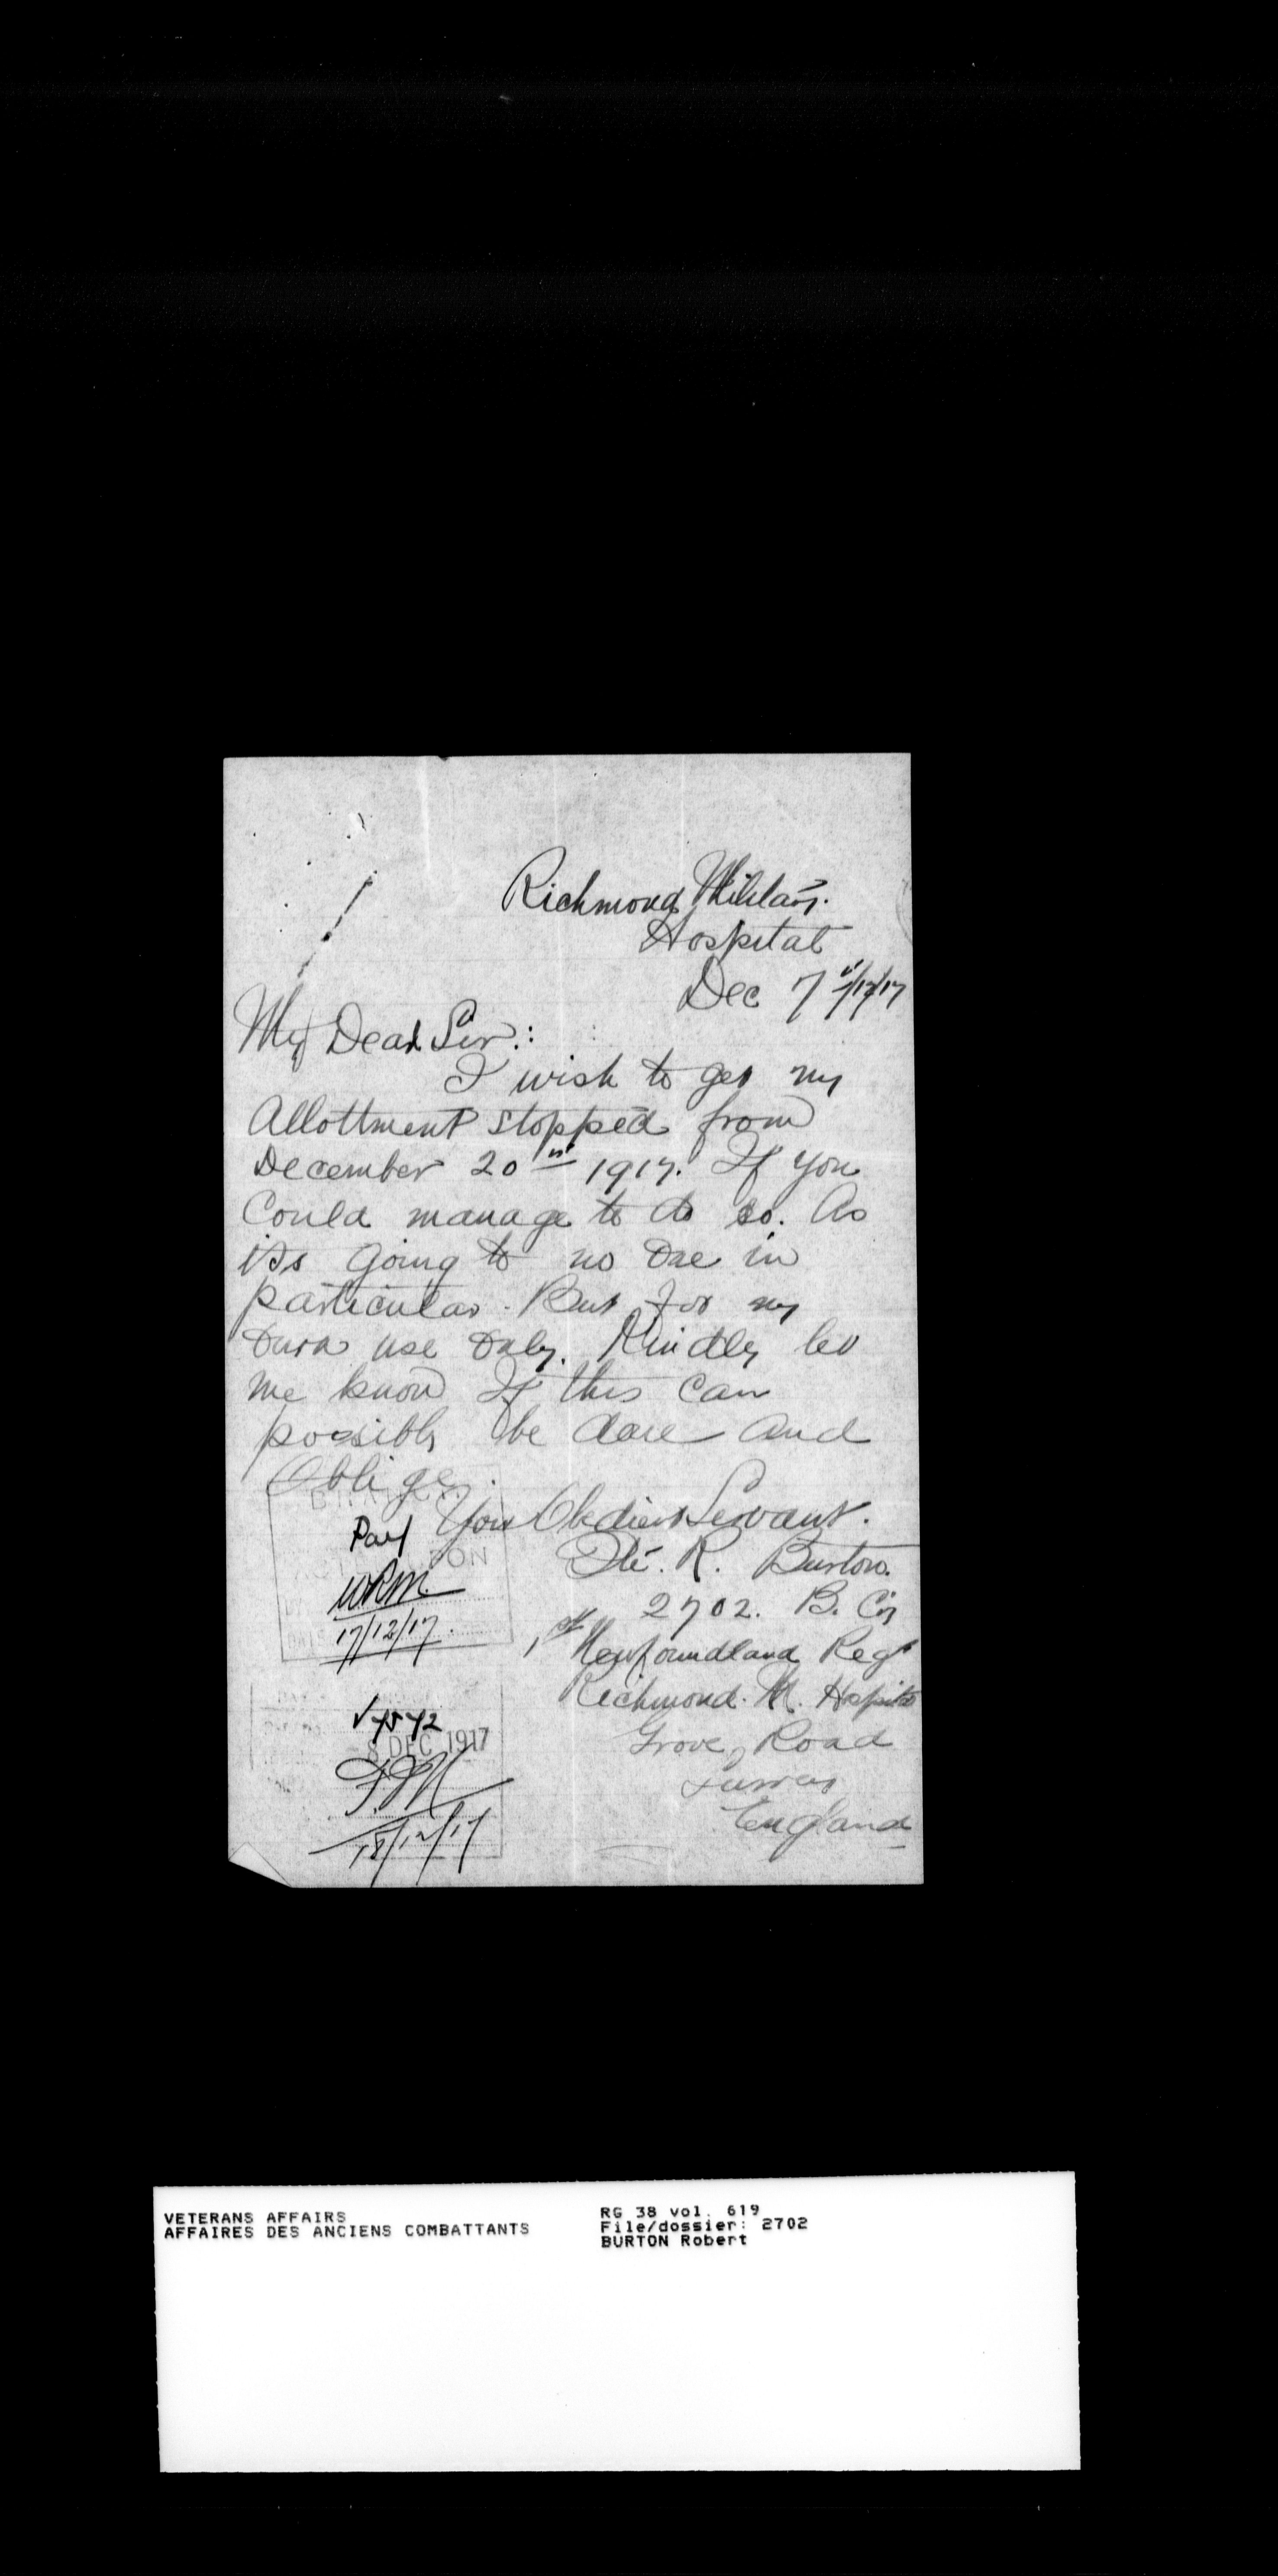 Richmond Military.
Hospital
Dec 7th/12/17
My Dear Sir.:
I wish to get my
Allottment stopped from
December 20th 1917. If you
Could manage to do so. As
its going to no one in
particular. But for my
own use only. Kindly let
me know If this can
possibly be done and
Oblige.
Your Obedient Servant.
Pte. R. Burton.
2702. B. Coy
1st Newfoundland Regt
Richmond. M. Hospital
Grove Road
Surrey
England
Pay
WRM
17/12/17.
8 DEC 1917
18/12/17
VETERANS AFFAIRS
AFFAIRES DES ANCIENS COMBATTANTS
RG 38 vol. 619
File/dossier: 2702
BURTON Robert